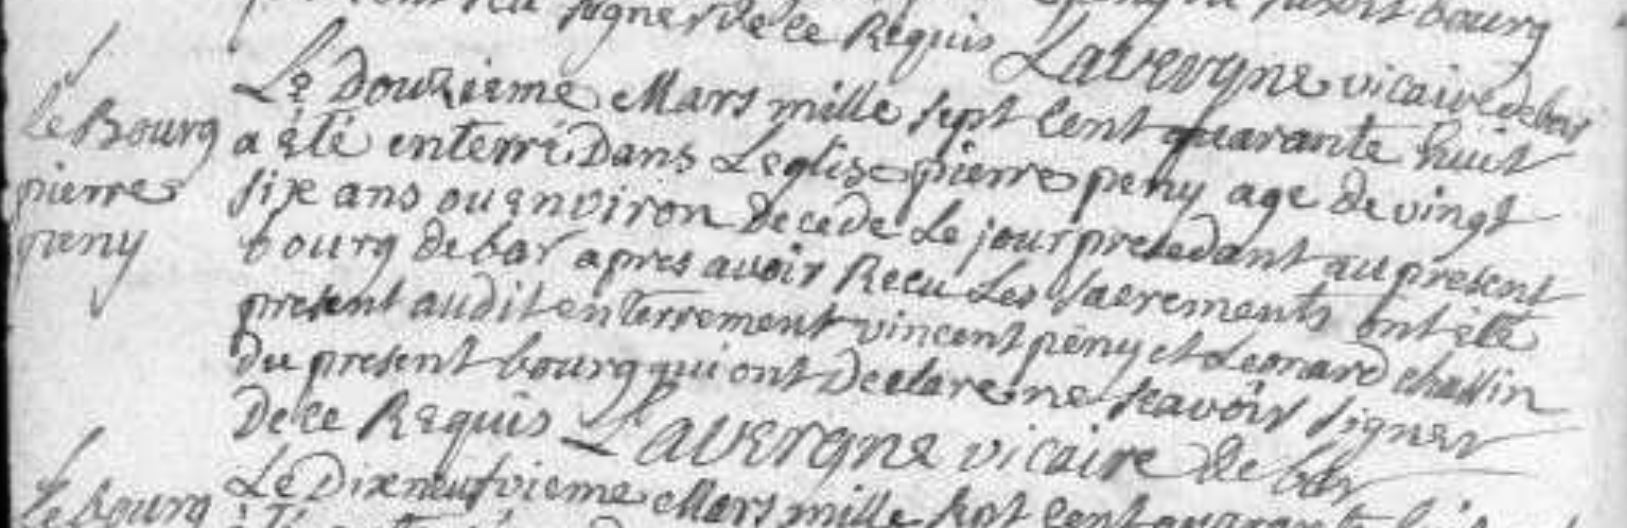 signer de ce Requis Lavergne vicaire de bar
Le Bourg
pierre
peny
Le Douzieme Mars mille sept cent quarante huit
a été enterré Dans Leglise pierre peny age de vingt
six ans ou environ decede Le jour precedant au present
bourg de bar apres avoir Recu Les Sacrements ont été
present audit enterrement vincent peny et Leonard
du present bourg qui ont declare ne scavoir signer
De ce Requis Lavergne vicaire de bar
Le bourg
Le Dixneufvieme Mars mille sept cent